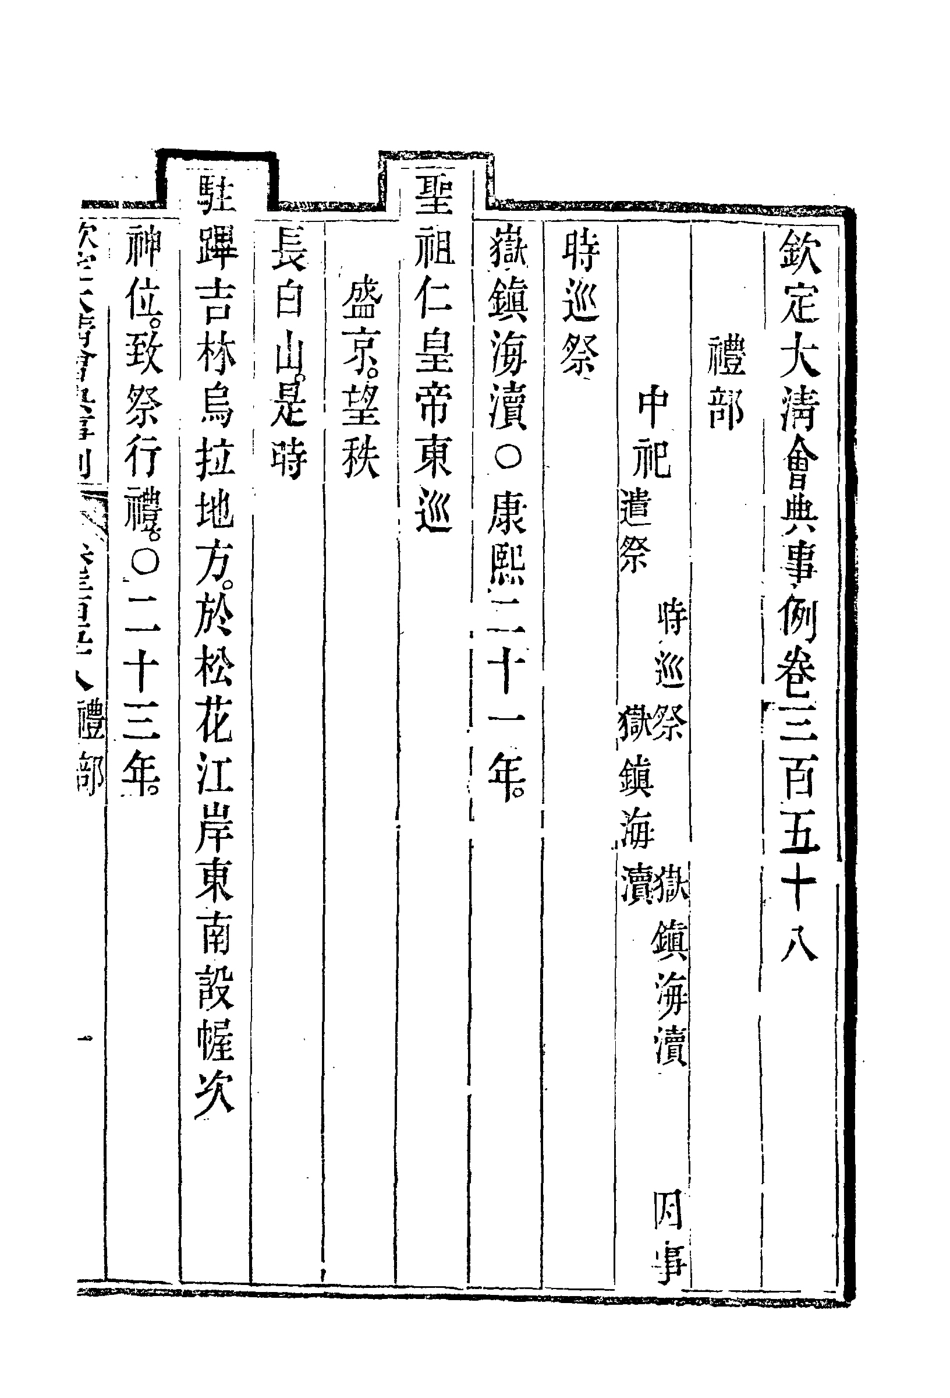 欽定大淸會典事例卷三百五十八
禮部
中祀
時巡祭 嶽鎮海瀆 因事
遣祭 嶽鎮海瀆
時巡祭
嶽鎮海瀆○康熙二十一年。
聖祖仁皇帝東巡
盛京。望秩
長白山。是時
駐蹕吉林烏拉地方。於松花江岸東南設幄次
神位。致祭行禮。○二十三年。
欽定大淸會典事例 卷三百五十八 禮部 一